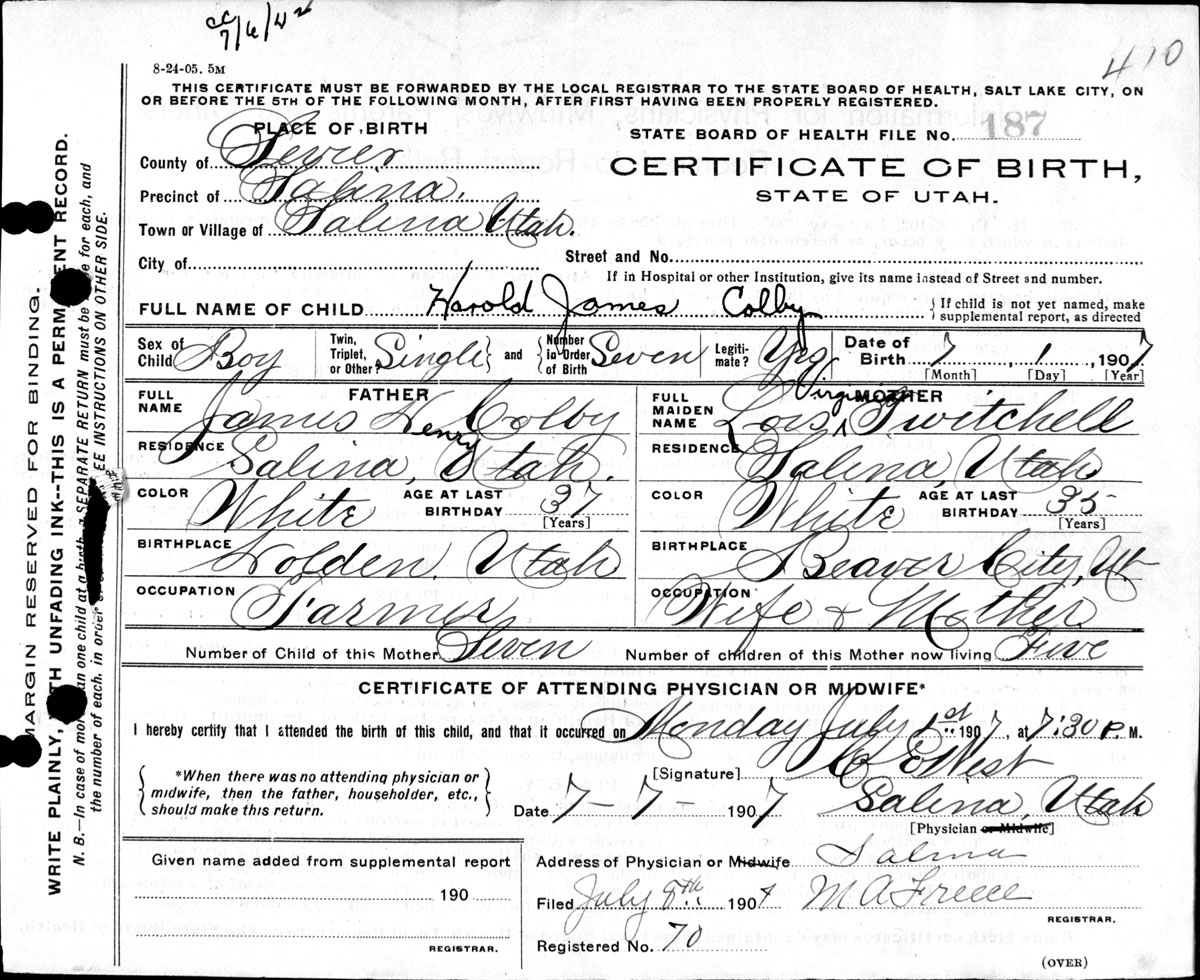 cc 7/6/42
410
8-24-05. 5M
THIS CERTIFICATE MUST BE FORWARDED BY THE LOCAL REGISTRAR TO THE STATE BOARD OF HEALTH, SALT LAKE CITY, ON
OR BEFORE THE 5TH OF THE FOLLOWING MONTH, AFTER FIRST HAVING BEEN PROPERLY REGISTERED.
PLACE OF BIRTH
STATE BOARD OF HEALTH FILE No. 187
County of Sevier
CERTIFICATE OF BIRTH,
Precinct of Salina.
STATE OF UTAH.
Town or Village of Salina Utah.
City of
Street and No.
If in Hospital or other Institution, give its name instead of Street and number.
FULL NAME OF CHILD Harold James Colby
If child is not yet named, make supplemental report, as directed
Sex of Child Boy Twin, Triplet, or Other? Single and Number in Order of Birth Seven Legitimate? Yes Date of Birth 7 1, 1907
[Month] [Day] [Year]
FATHER
MOTHER
FULL NAME James Henry Colby
FULL MAIDEN NAME Lois Virginia Twitchell
RESIDENCE Salina, Utah.
RESIDENCE Salina, Utah
COLOR White AGE AT LAST BIRTHDAY 37 [Years]
COLOR White AGE AT LAST BIRTHDAY 35 [Years]
BIRTHPLACE Holden, Utah
BIRTHPLACE Beaver City, Ut
OCCUPATION Farmer
OCCUPATION Wife & Mother
Number of Child of this Mother Seven Number of children of this Mother now living Five
CERTIFICATE OF ATTENDING PHYSICIAN OR MIDWIFE*
I hereby certify that I attended the birth of this child, and that it occurred on Monday July 1st 1907, at 7:30 P. M.
*When there was no attending physician or
midwife, then the father, householder, etc.,
should make this return.
[Signature] C E West
Date 7-7- 1907 Salina, Utah
[Physician or Midwife]
Given name added from supplemental report
190
REGISTRAR.
Address of Physician or Midwife Salina
Filed July 8th 1907
REGISTRAR.
Registered No. 70
(OVER)
MARGIN RESERVED FOR BINDING.
WRITE PLAINLY, WITH UNFADING INK--THIS IS A PERMANENT RECORD.
N. B.—In case of more than one child at a birth, a SEPARATE RETURN must be made for each, and
the number of each, in order SEE INSTRUCTIONS ON OTHER SIDE.